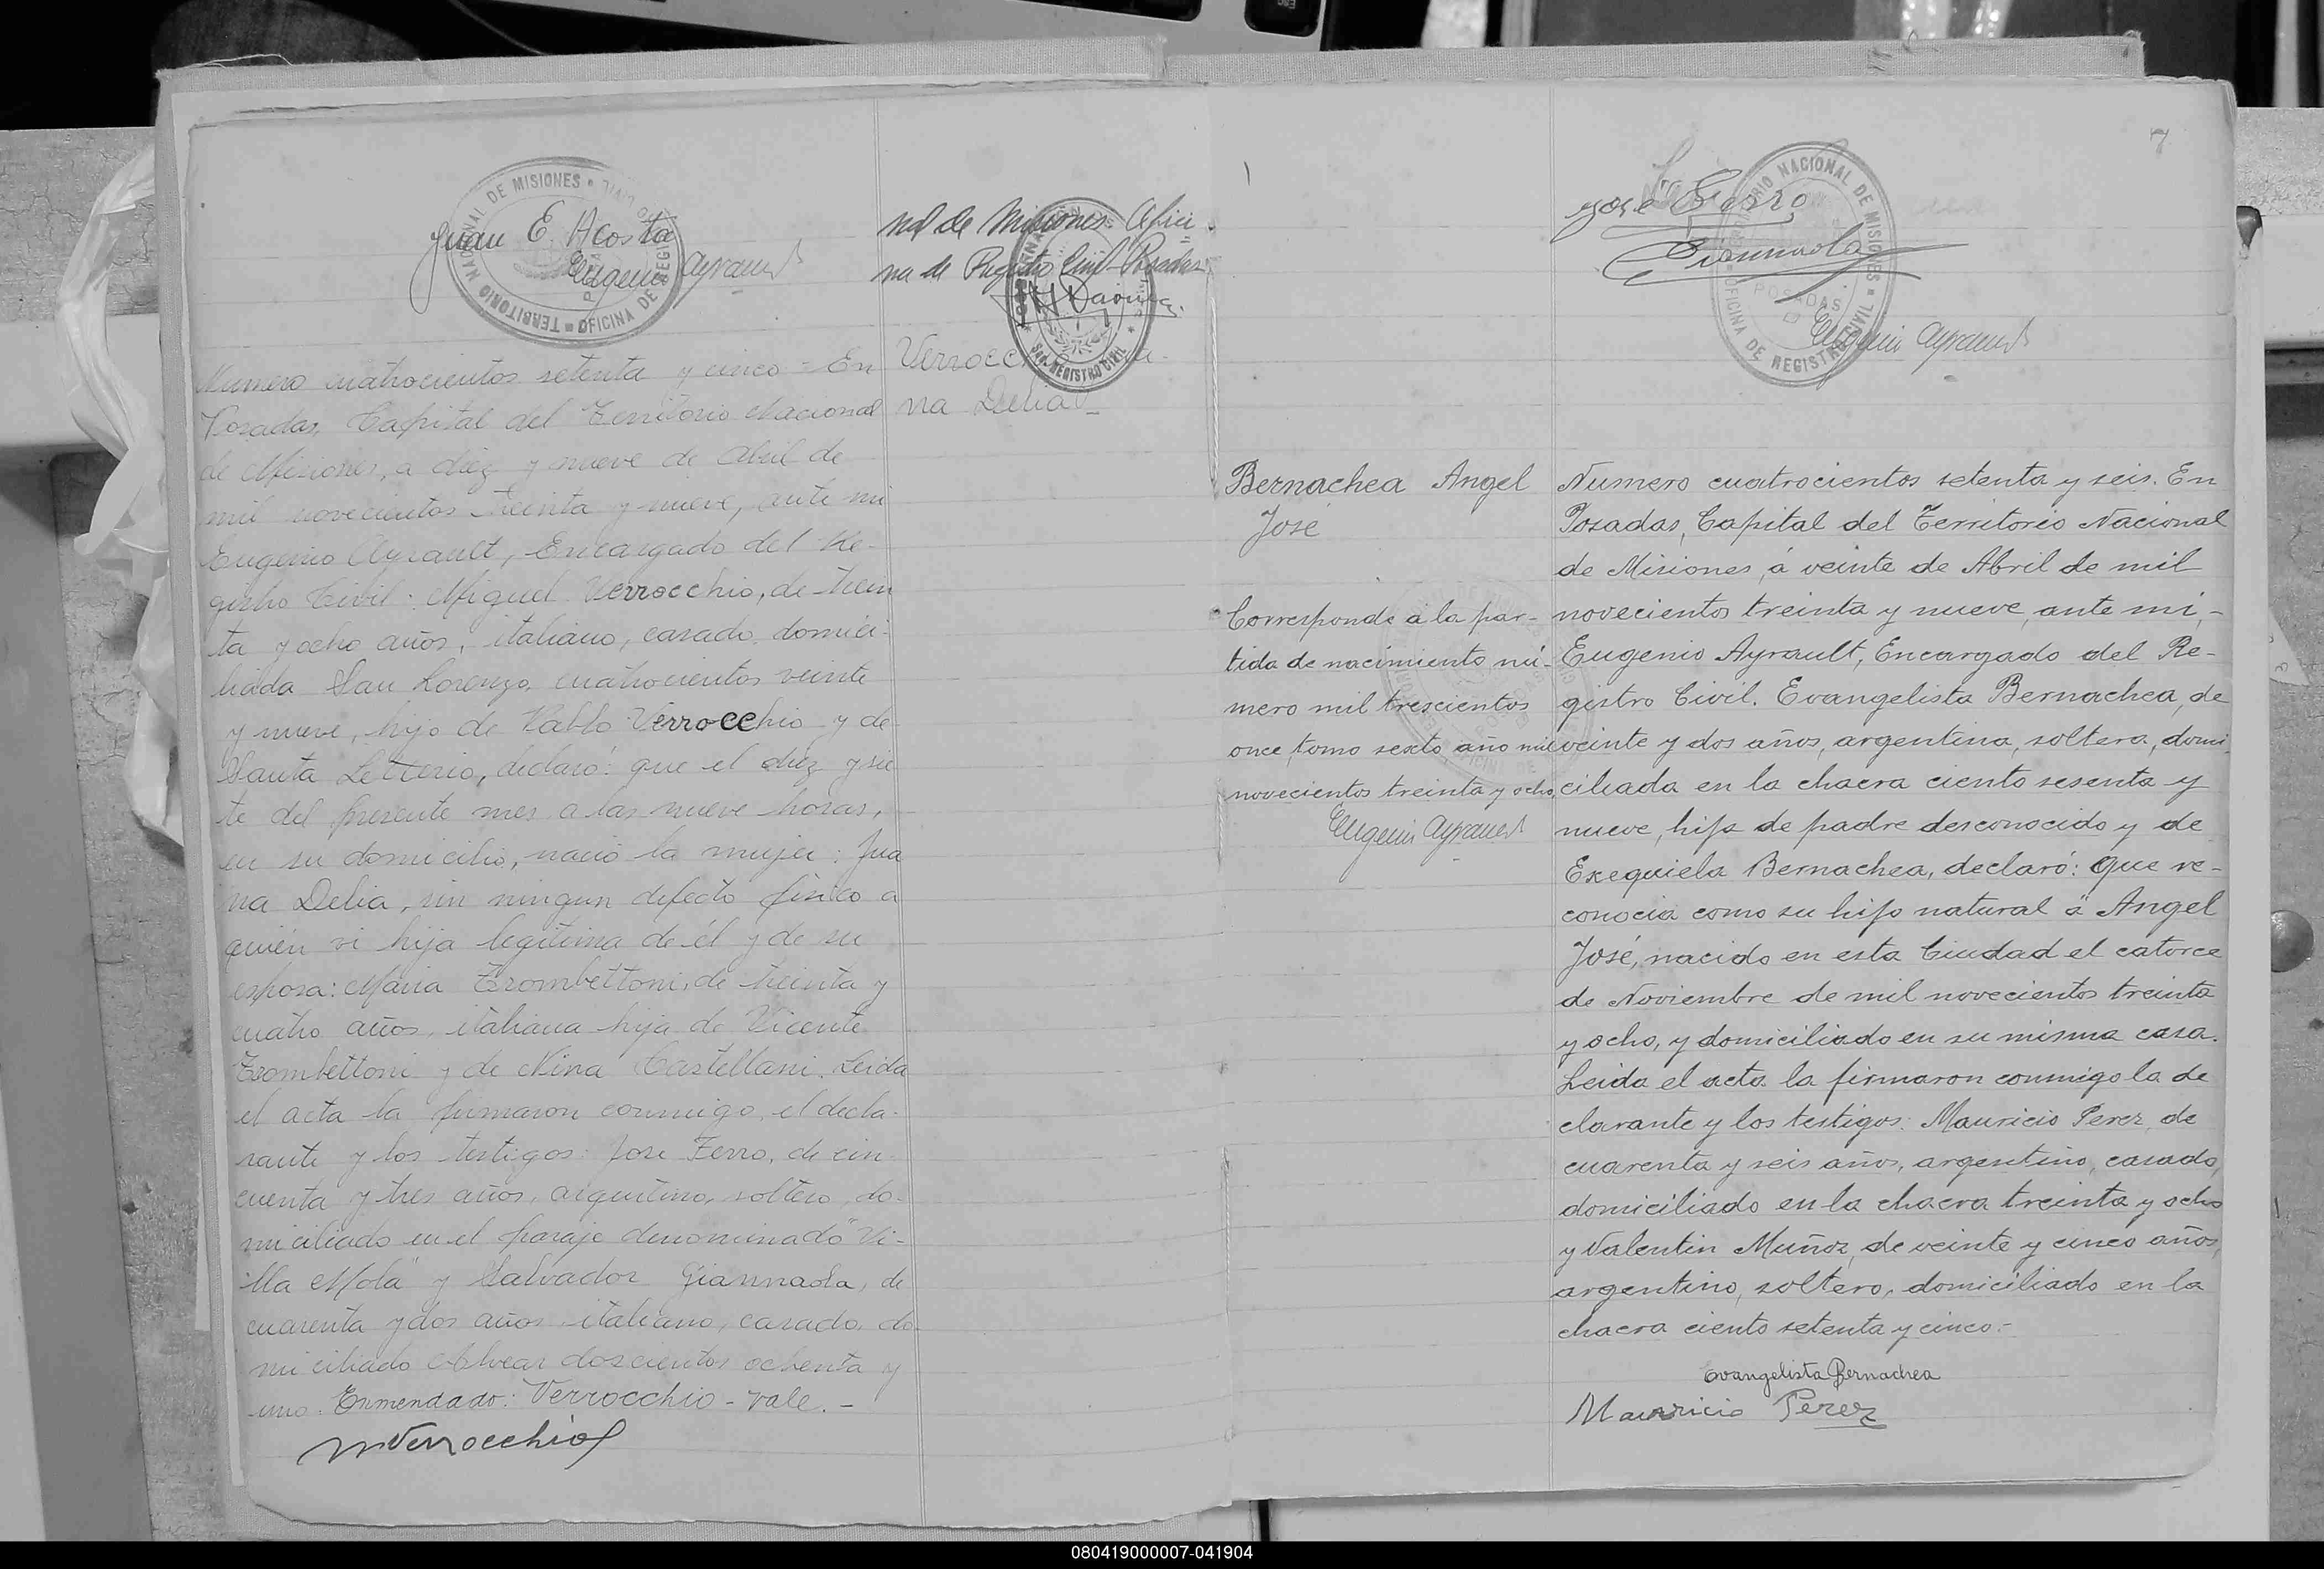 Juan E. Acosta
Eugenio Ayrault
TERRITORIO NACIONAL DE MISIONES
OFICINA DE REGISTRO CIVIL
nal de Misiones Ofici-
na de Registro Civil - Posadas
REGISTRO CIVIL
Numero cuatrocientos setenta y cinco = En
Posadas, Capital del Territorio Nacional
de Misiones, a diez y nueve de Abril de
mil novecientos treinta y nueve, ante mi
Eugenio Ayrault, Encargado del Re-
gistro Civil: Miguel Verrocchio, de trein
ta y ocho años, italiano, casado, domici-
liada San Lorenzo, cuatrocientos veinte
y nueve, hijo de Pablo Verrocchio y de
Santa Letterio, declaró: que el diez y sie
te del presente mes a las nueve horas,
en su domicilio, nació la mujer: Jua
na Delia, sin ningun defecto fisico a
quién vi hija legitima de él y de su
esposa: Maria Trombettoni, de treinta y
cuatro años, italiana hija de Vicente
Trombettoni y de Nina Castellani. Leida
el acta la firmaron conmigo, el decla-
rante y los testigos: Jose Ferro, de cin
cuenta y tres años, argentino, soltero, do-
miciliado en el paraje denominado "Vi-
lla Mola" y Salvador Giannaola, de
cuarenta y dos años, italiano, casado, do-
miciliado Alvear doscientos ochenta y
uno. Enmendado: Verrocchio - Vale. -
M Verrocchio
Verrocc
na Delia -
7
José Ferro
TERRITORIO NACIONAL DE MISIONES
OFICINA DE REGISTRO CIVIL
POSADAS
Eugenio Ayrault
Bernachea Angel
José
Corresponde a la par-
tida de nacimiento nú-
mero mil trescientos
once, tomo sexto año mil
novecientos treinta y ocho.
Eugenio Ayrault
Numero cuatrocientos setenta y seis. En
Posadas, Capital del Territorio Nacional
de Misiones, á veinte de Abril de mil
novecientos treinta y nueve, ante mi, -
Eugenio Ayrault, Encargado del Re-
gistro Civil. Evangelista Bernachea, de
veinte y dos años, argentina, soltera, domi
ciliada en la chacra ciento sesenta y
nueve, hija de padre desconocido y de
Exequiela Bernachea, declaró: Que re-
conocia como su hijo natural á Angel
José, nacido en esta Ciudad el catorce
de Noviembre de mil novecientos treinta
y ocho, y domiciliado en su misma casa.
Leida el acta la firmaron conmigo la de
clarante y los testigos: Mauricio Perez, de
cuarenta y seis años, argentino, casado,
domiciliado en la chacra treinta y ocho
y Valentin Muñoz, de veinte y cinco años,
argentino, soltero, domiciliado en la
chacra ciento setenta y cinco. -
Evangelista Bernachea
Mauricio Perez
080419000007-041904